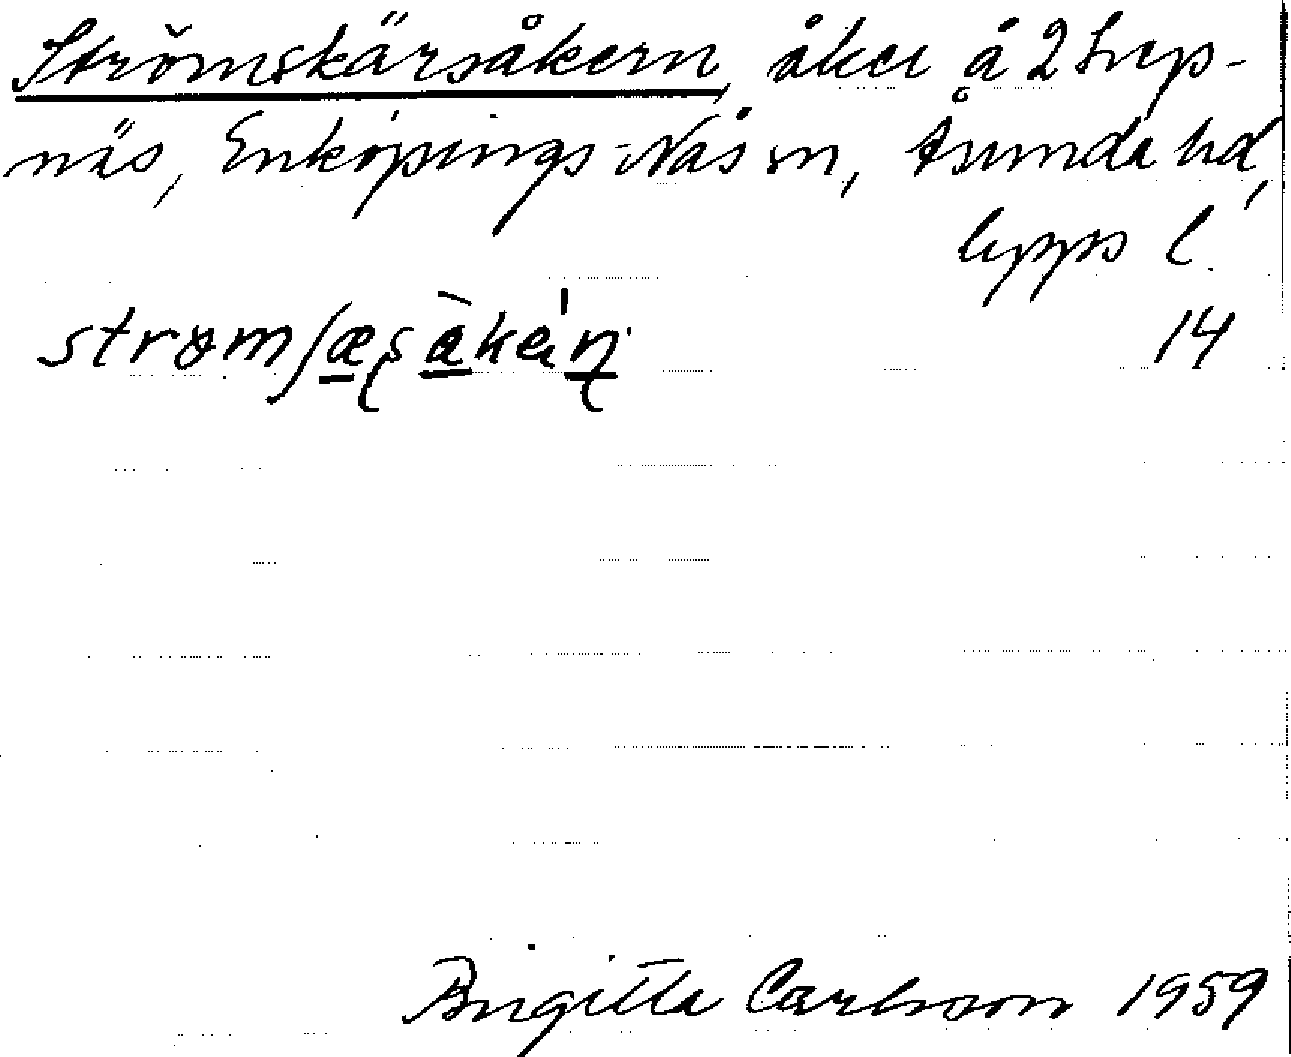 Strömskärsåkern, åker å 2 Trep-
näs, Enköpings-Näs sn, Åsunda hd,
Upps l.
14
Birgitta Carlsson 1959